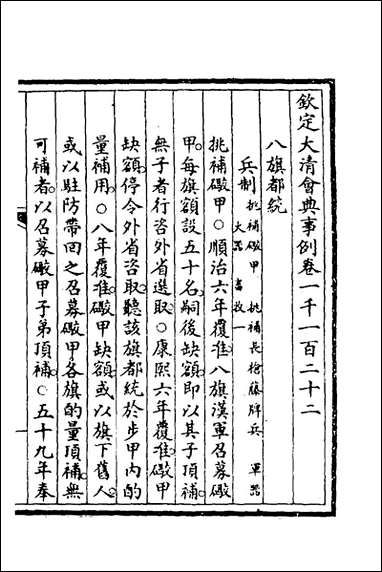 欽定大清會典事例卷一千一百二十二
八旗都統
兵制 挑補礮甲 挑補長槍藤牌兵 軍器
火器 畜牧一
挑補礮甲○順治六年覆准八旗漢軍召募礮
甲每旗額設五十名嗣後缺額即以其子頂補
無子者行咨外省選取○康熙六年覆准礮甲
缺額停令外省咨取聽該旗都統於步甲內酌
量補用○八年覆准礮甲缺額或以旗下舊人
或以駐防帶回之召募礮甲各旗酌量頂補無
可補者以召募礮甲子弟頂補○五十九年奉